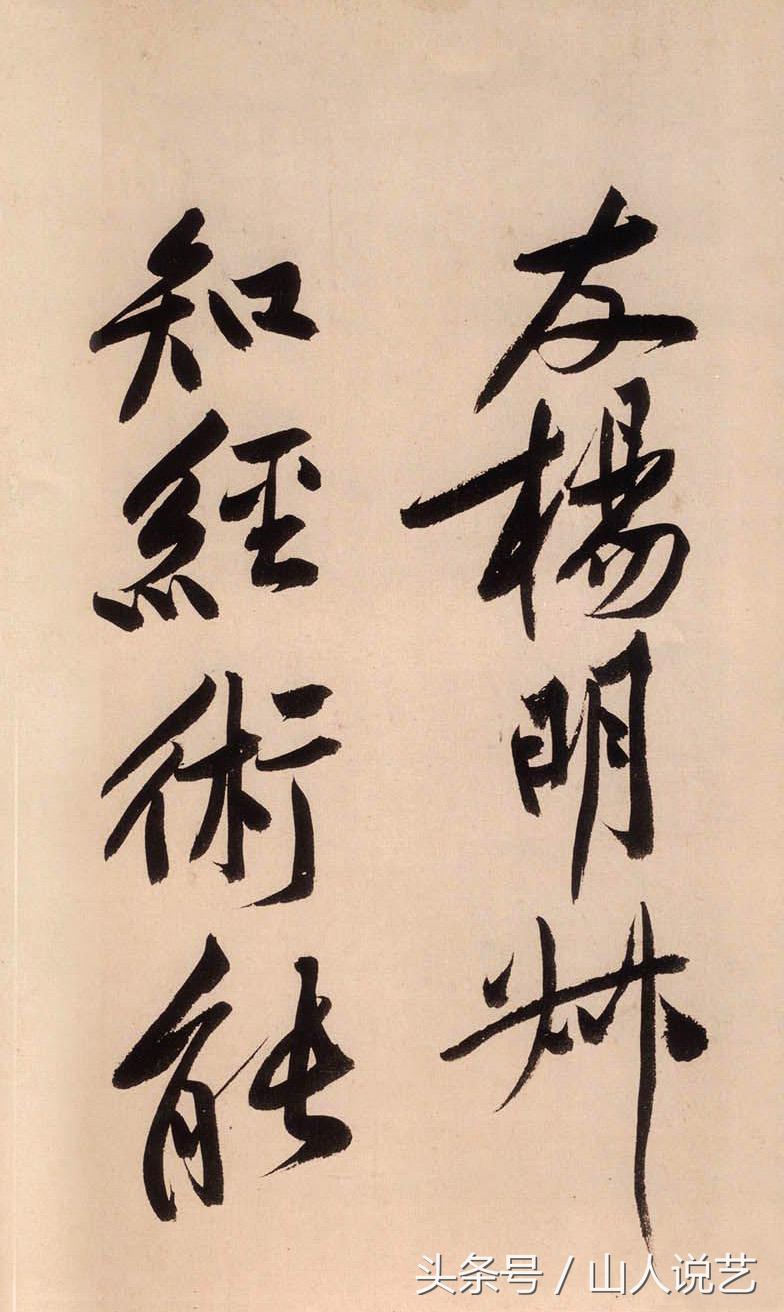 友楊明叔
知經術能
头条号 / 山人说艺